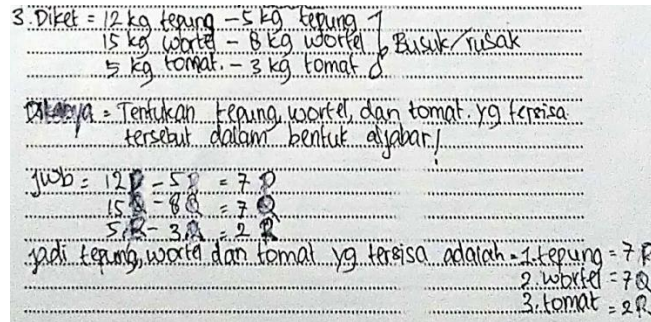 3. Diket = 12 kg tepung - 5 kg tepung
15 kg wortel - 8 kg wortel } Busuk/rusak
5 kg tomat. - 3 kg tomat
Ditanya = Tentukan tepung, wortel, dan tomat. yg tersisa
tersebut dalam bentuk aljabar!
Jwb = 12P - 5P = 7P
15Q - 8Q = 7Q
5R - 3R = 2R
Jadi tepung, wortel dan tomat yg tersisa adalah = 1. tepung = 7P
2. wortel = 7Q
3. tomat = 2R